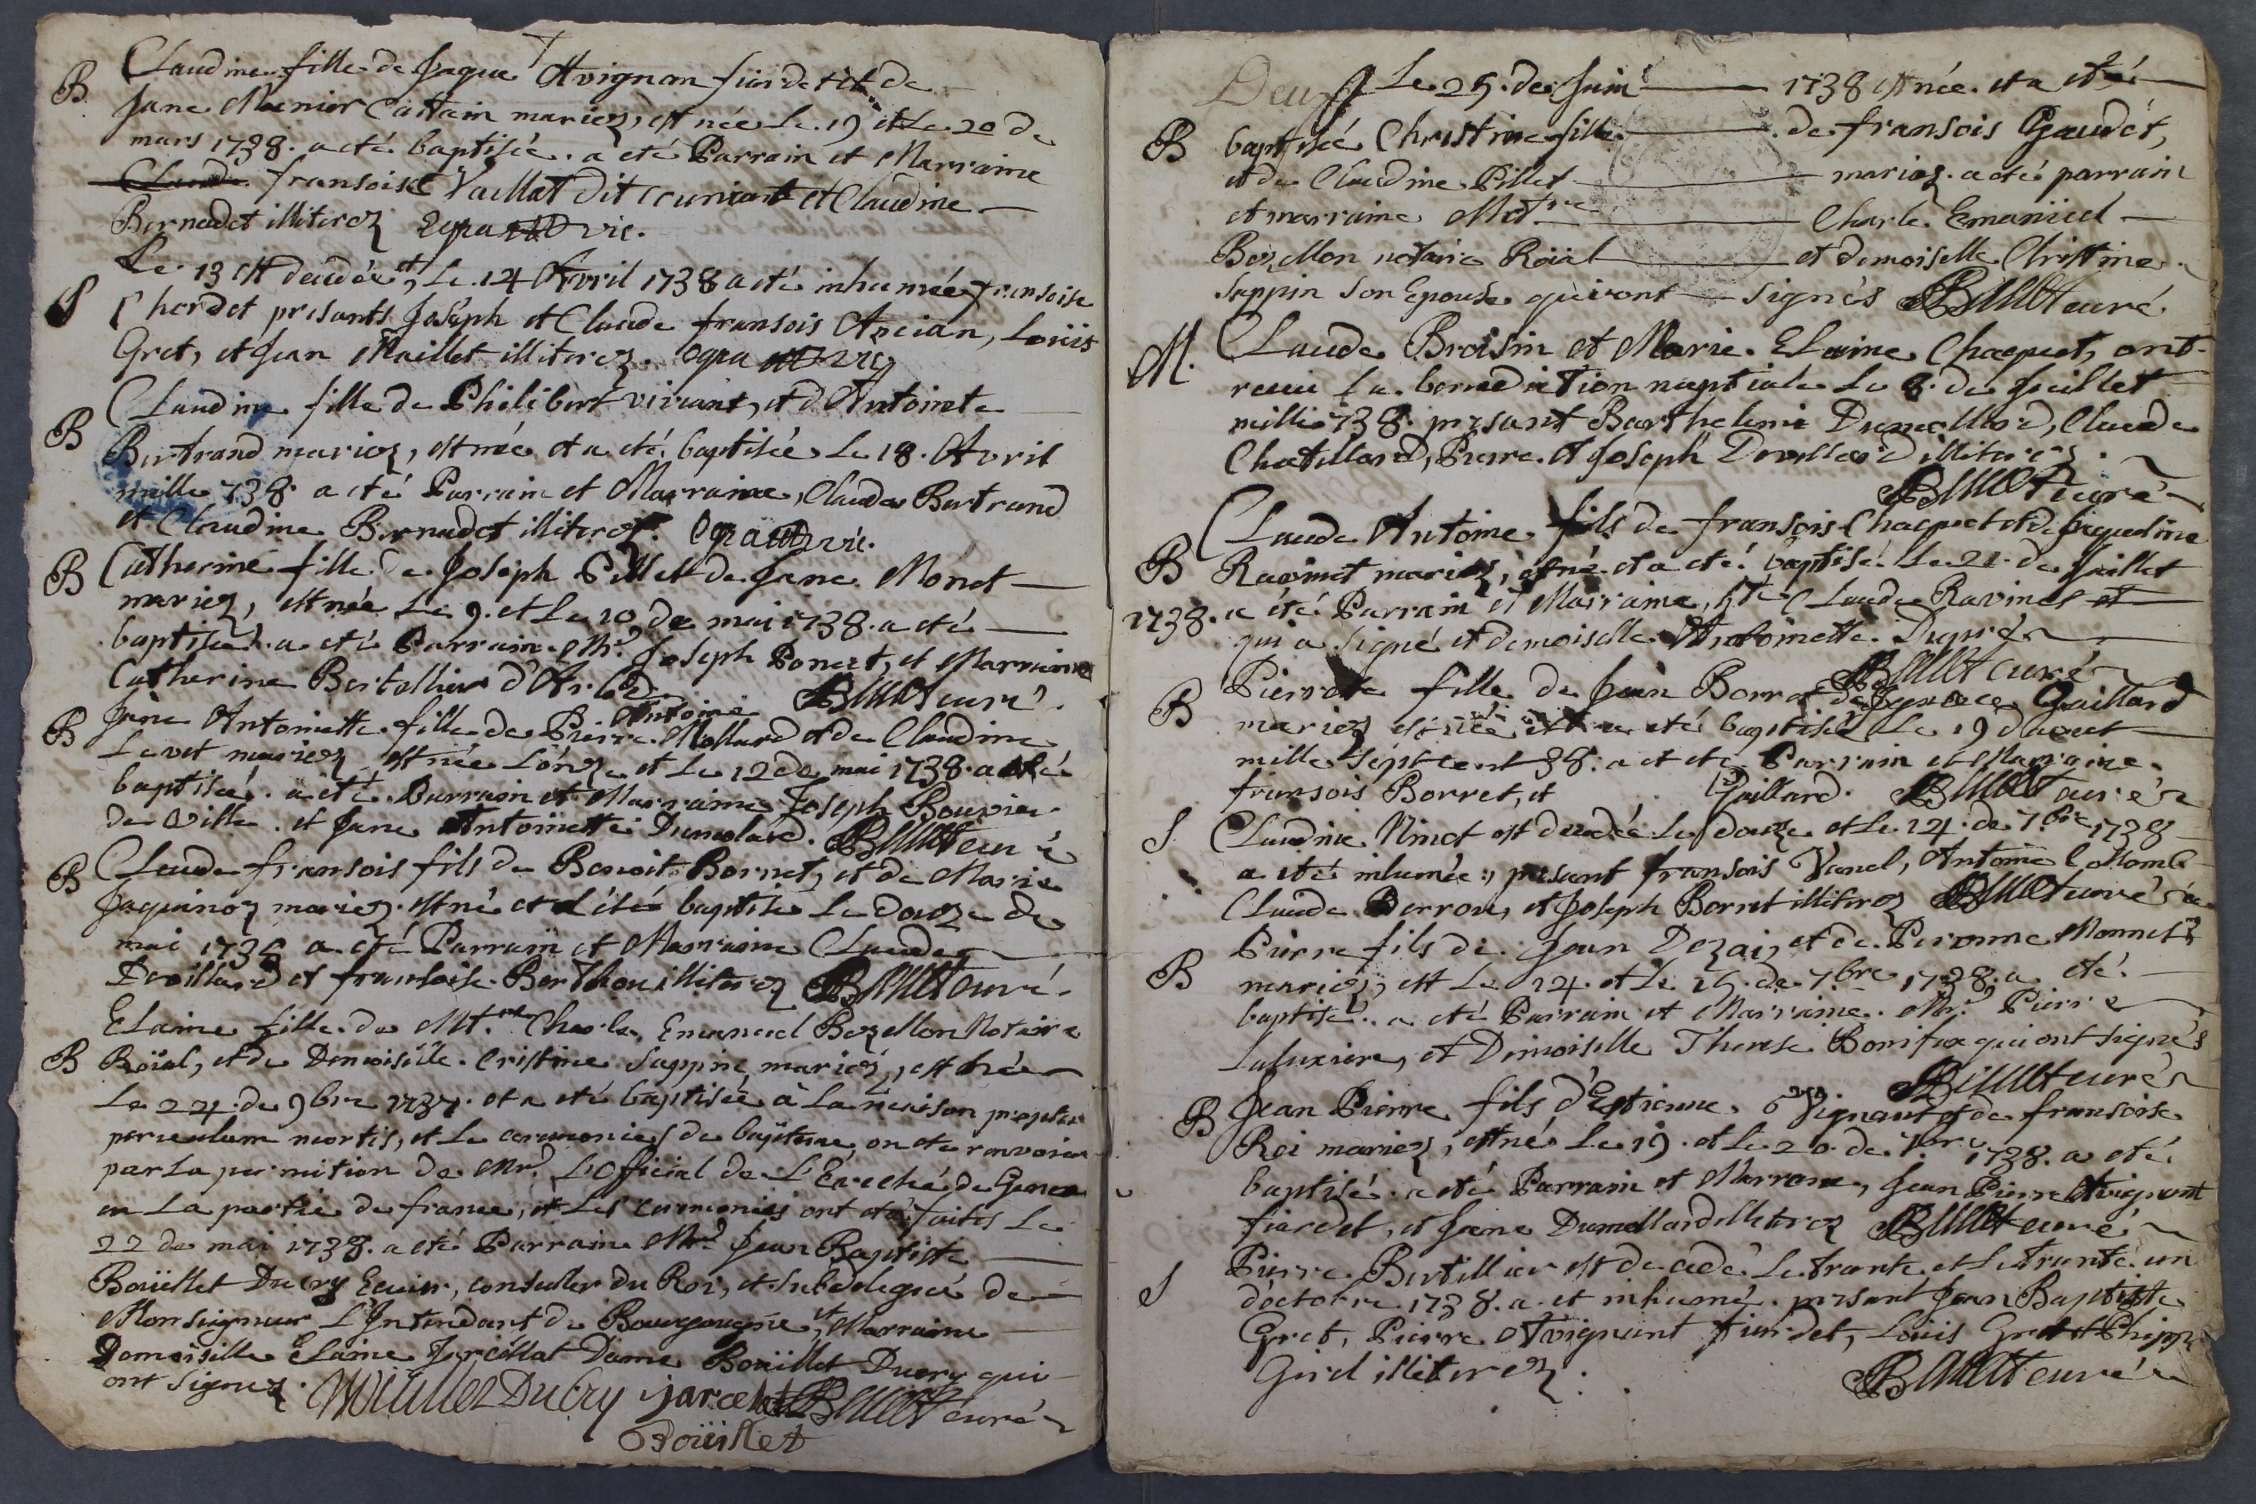 B Claudine fille de Jaque Avignan fiardet et de
Jane Monier Castain mariez, est née Le 19 et Le 20 de
mars 1738. a eté baptisée. a eté Parrain et Marraine
Claude fransoise Vaillat dit et Claudine
Bernadet illiterez vic.
S Le 13 est decedée et Le 14 Avril 1738 a eté inhumée fransoise
Cherdet presants Joseph et Claude fransois Ancian, Loüis
Gret, et Jean Maillet illiterez. vic
B Claudine fille de Philibert viviant, et d'Antointe
Bertrand mariez, est née et a eté baptisée Le 18. Avril
mille 738. a eté Parrain et Marraine, Claude Bertrand
et Claudine Bernadet illiterez. vic.
B Catherine fille de Joseph Pillet de Jane Monet
mariez, est née Le 9. et Le 10 de mai 1738. a eté
baptisée. a eté Parrain Mr. Joseph Poncet, et Marraine
Catherine Bertellier d'Arlod Billiet curé.
Antoine
B Jane Antoinette fille de Pierre Mollard et de Claudine
Levet mariez est née L'onze et Le 12 de mai 1738. a eté
baptisée. a eté Parrain et Marraine Joseph Bouvier
de Ville. et Jane Antoinette Dumolard. Billiet curé
B Claude fransois fils de Benoit Bornet, et de Marie
Jaquinoz mariez. est né et a été baptisé Le douze de
mai 1738 a eté Parrain et Marraine Claude
Devillard et fransoise Berthou illiterez Billiet curé.
B Elaine fille de Mt.re Charle Emanuel Bozellon Notaire
Roïal, et de Demoiselle Cristine Sappin mariez, est née
Le 24. de 9bre 1737. et a eté baptisée à La maison propter
periculum mortis, et Le ceremonies de baptesme on ete
par La permition de Mr. L'Official de L'Eveché de Geneve
en La partie de france, et Les ceremonies ont eté faites Le
22 de mai 1738. a eté Parrain Mr. Jean Baptiste
Boüillet Ducry Ecuier, consuller du Roi, et subdelegué de
Monseigneur L'Intendant de Bourgougne, et Marraine
Demoiselle Elaine Jarcellat Dame Boüillet Ducry qui
ont signez. Boüillet Ducry jarcelat Billiet curé
Boüillet
Deux Le 25. de Juin 1738 est née. et a eté
B baptisée Christine fille de fransois Gaudet,
et de Claudine Pillet mariez. a eté parrain
et marraine Mt.re Charle Emanüel
Bozellon notaire Roïal et demoiselle Christine
Sappin Son Epouse qui ont signés Billiet curé.
M. Claude Broisin et Marie Elaine Chacquet, ont
receu La benediction nuptiale Le 8. de Juillet
mille 738. presant Barthelemi Dumollard, Claude
Chatillard, Pierre et Joseph Devillard illiterez.
Billiet curé
B Claude Antoine fils de fransois Chacquet et de Jaqueline
Ravinet mariez, est né et a eté baptisé Le 21. de Juillet
1738. a été Parrain et Marraine, Claude Ravinet et
qui a signé et demoiselle Antoinette Dupré
Billiet curé
B Pierrote fille de Jean Borret de Gaillard
mariez est née et a eté baptisée Le 19 d'aout
mille septcent 38. a eté Parrain et Marraine
fransois Borret, et Gaillard. Billiet curé
S Claudine Ninet est decedée Le douze et Le 14. de 7bre 1738
a eté inhumée, presant fransois Vanel, Antoine Collomb
Claude Perron, et Joseph Bornet illiterez Billiet curé
B Pierre fils de Jean Dezai, et de Peronne Monnet
mariez, est Le 14. et Le 15. de 7bre 1738. a eté
baptisé. a eté Parrain et Marraine. Mr. Pierre
Laluxiere, et Demoiselle Therese Bonifax qui ont signés
Billiet curé
B Jean Pierre fils d'Estienne Avignant et de fransoise
Roi mariez, est né Le 19. et Le 20. de 7bre 1738. a eté
baptisé. a eté Parrain et Marrane, Jean Pierre Avignant
fiardet, et Jane Dumollard illiterez Billiet curé
S Pierre Bertillier est decedé Le trante et Le trante un
d'octobre 1738. a et inhumé. presant Jean Baptiste
Gret, Pierre Avignant fiardet, Loüis Gret et
Girel illiterez. Billiet curé